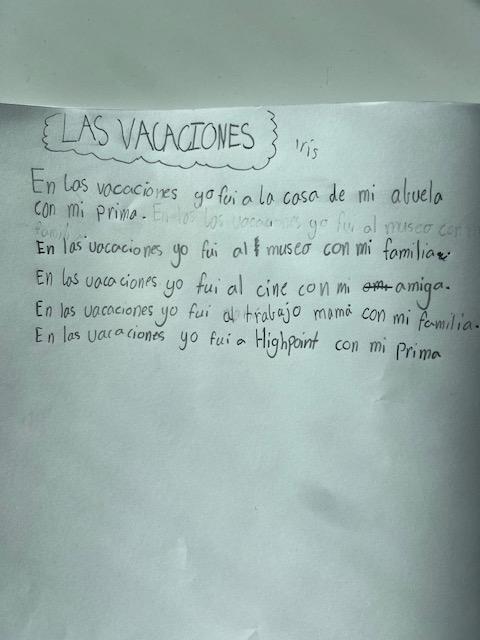 LAS VACACIONES
Iris
En las vacaciones yo fui a la casa de mi abuela
con mi prima. En las las vacaciones yo fui al museo con mi
famili
En las vacaciones yo fui al museo con mi familia.
En las vacaciones yo fui al cine con mi am amiga.
En las vacaciones yo fui al trabajo mamá con mi familia.
En las vacaciones yo fui a Highpoint con mi prima